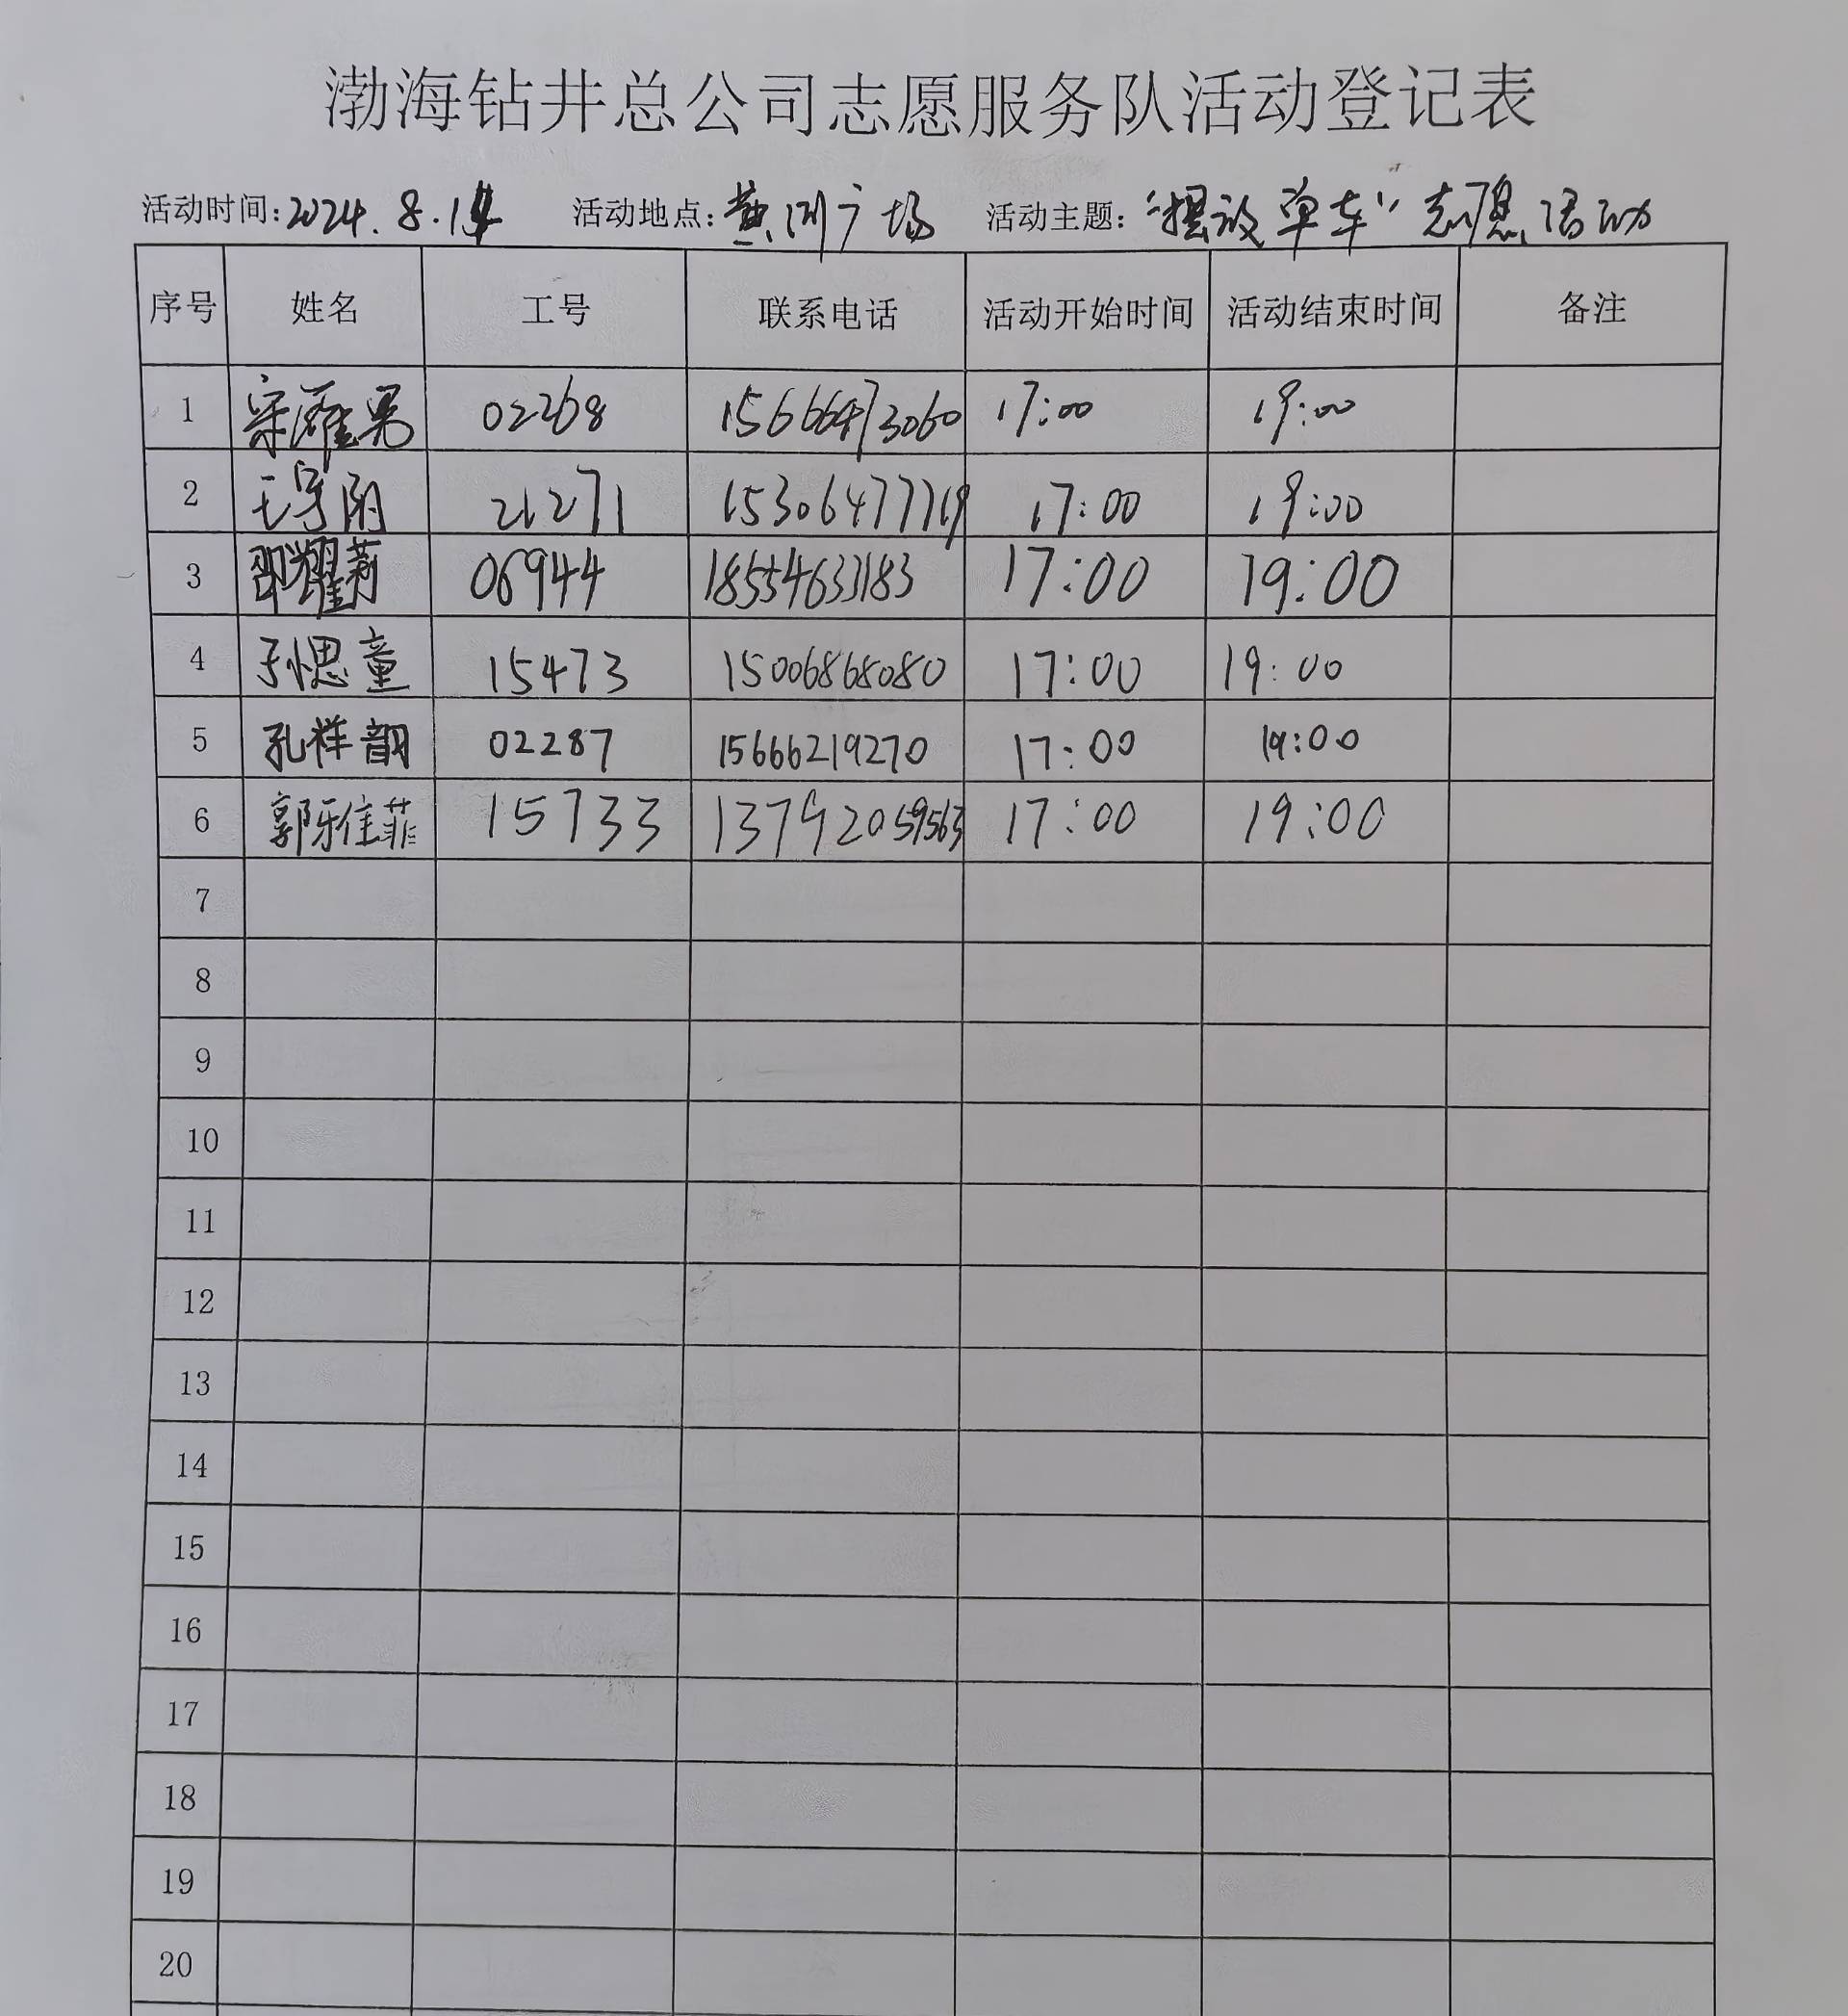 渤海钻井总公司志愿服务队活动登记表
活动时间:2024.8.14 活动地点:黄河广场 活动主题:“摆放单车”志愿活动
序号 姓名 工号 联系电话 活动开始时间 活动结束时间 备注
1 宋雁男 02268 15666473060 17:00 19:00
2 21271 15306477719 17:00 19:00
3 邵耀莉 06944 18554633183 17:00 19:00
4 于愢童 15473 15006868080 17:00 19:00
5 孔祥韻 02287 15666219270 17:00 19:00
6 郭乐佳菲 15733 13792059563 17:00 19:00
7
8
9
10
11
12
13
14
15
16
17
18
19
20